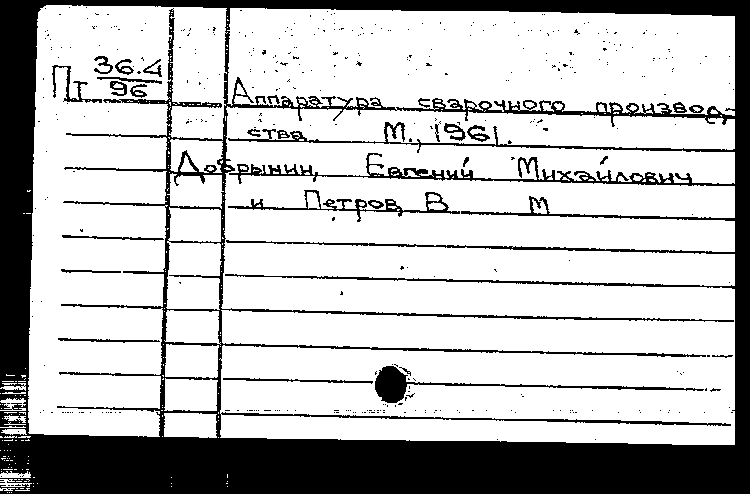 Пт 36.4/96
Аппаратура сварочного производ-
ства М., 1961.
Добрынин, Евгений Михайлович
и Петров, В М